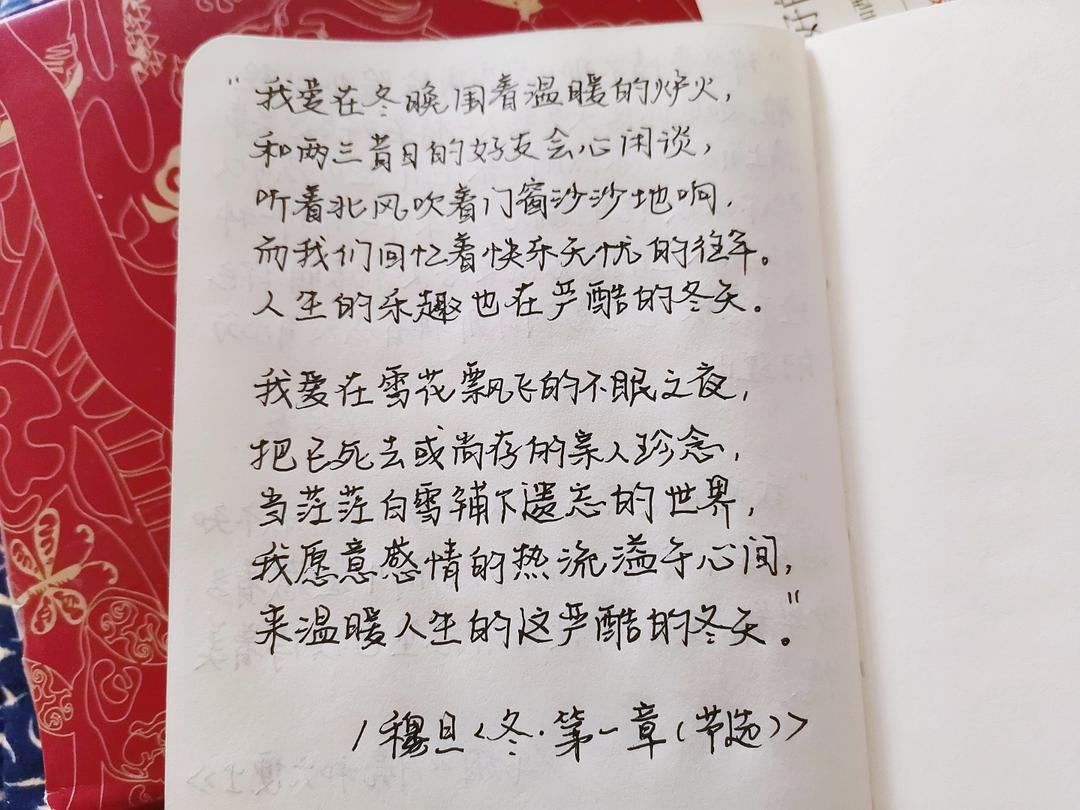 "我爱在冬晚围着温暖的炉火,
和两三昔日的好友会心闲谈,
听着北风吹着门窗沙沙地响,
而我们回忆着快乐无忧的往年。
人生的乐趣也在严酷的冬天。
我爱在雪花飘飞的不眠之夜,
把已死去或尚存的亲人珍念,
当茫茫白雪铺下遗忘的世界,
我愿意感情的热流溢于心间,
来温暖人生的这严酷的冬天。"
/穆旦<冬·第一章(节选)>